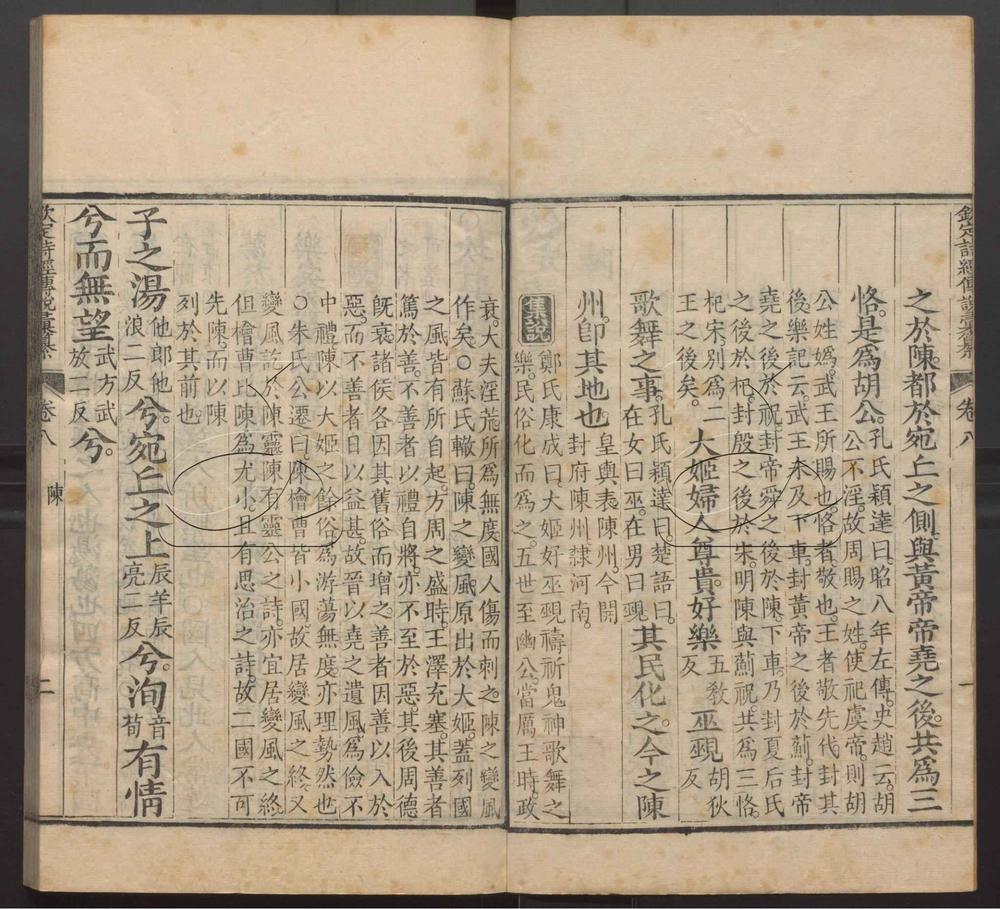 欽定詩經傳說彙纂
卷八
一
之於陳都於宛丘之側與黃帝帝堯之後共爲三
恪是爲胡公孔氏穎達曰昭八年左傳史趙云胡
公不淫故周賜之姓使祀虞帝則胡
公姓嬀武王所賜也恪者敬也王者敬先代封其
後樂記云武王未及下車封黃帝之後於薊封帝
堯之後於祝封帝舜之後於陳下車乃封夏后氏
之後於杞封殷之後於宋明陳與薊祝共爲三恪
杞宋別爲二
王之後矣
大姬婦人尊貴好樂五敎反巫覡胡狄反
歌舞之事孔氏穎達曰楚語曰
在女曰巫在男曰覡
其民化之今之陳
州卽其地也皇輿表陳州今開
封府陳州隸河南
集說
鄭氏康成曰大姬好巫覡禱祈鬼神歌舞之
樂民俗化而爲之五世至幽公當厲王時政
衰大夫淫荒所爲無度國人傷而刺之陳之變風
作矣○蘇氏轍曰陳之變風原出於大姬蓋列國
之風皆有所自起方周之盛時王澤充塞其善者
篤於善不善者以禮自將亦不至於惡其後周德
旣衰諸侯各因其舊俗而增之善者因善以入於
惡而不善者日以益甚故晉以堯之遺風爲儉不
中禮陳以大姬之餘俗爲游蕩無度亦理勢然也
○朱氏公遷曰陳檜曹皆小國故居變風之終又
變風訖於陳靈陳有靈公之詩亦宜居變風之終
但檜曹比陳爲尤小且有思治之詩故二國不可
先陳而以陳
列於其前也
子之湯他郎他浪二反兮宛丘之上辰羊辰亮二反兮洵音荀有情
兮而無望武方武放二反兮
欽定詩經傳說彙纂
卷八
陳
二